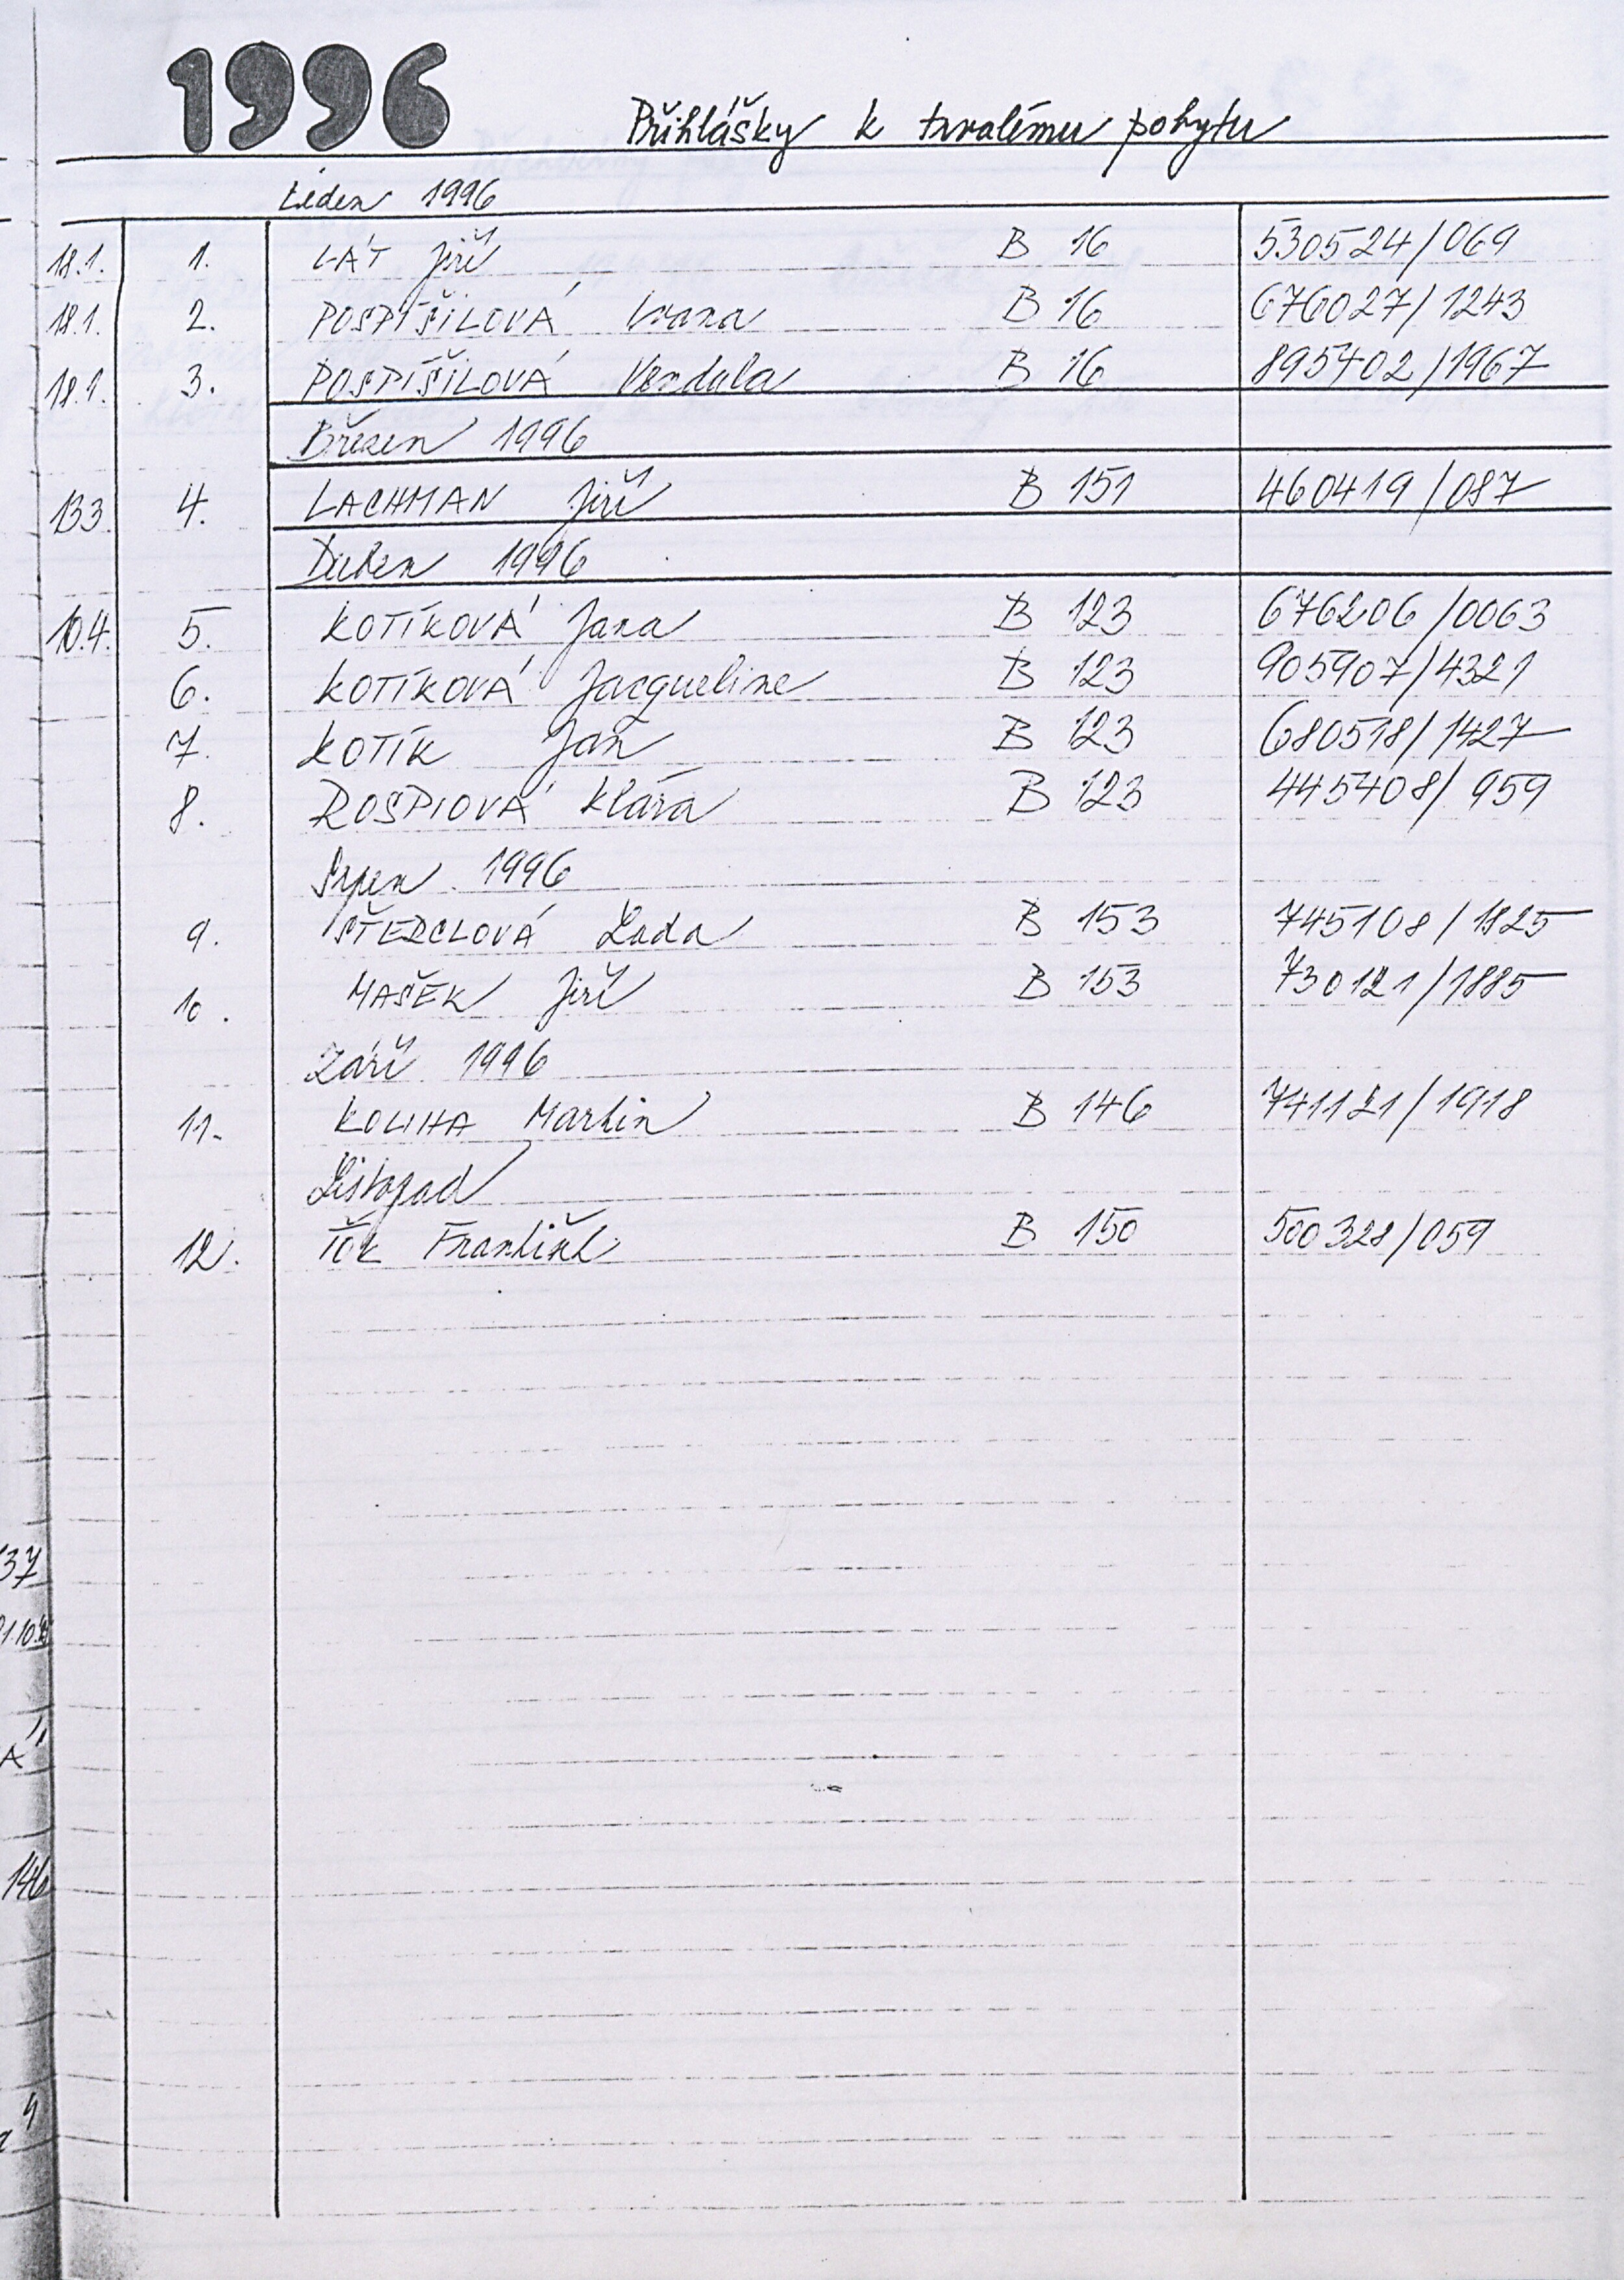 1996 Přihlášky k trvalému pobytu
Leden 1996
18.1. 1. LÁT Jiří B 16 530524/069
18.1. 2. POSPÍŠILOVÁ Ivana B 16 676027/1243
18.1. 3. POSPÍŠILOVÁ Vendula B 16 895402/1967
Březen 1996
13.3. 4. LACHMAN Jiří B 151 460419/087
Duben 1996
10.4. 5. KOTÍKOVÁ Jana B 123 676206/0063
6. KOTÍKOVÁ Jacqueline B 123 905907/4321
7. KOTÍK Jan B 123 680518/1427
8. ROSPIOVÁ Klára B 123 445408/959
Srpen 1996
9. ŠTERCLOVÁ Lada B 153 745108/1825
10. MAŠEK Jiří B 153 730121/1885
Září 1996
11. KOLIHA Martin B 146 741121/1918
Listopad
12. ŤOK František B 150 500328/059
37
146